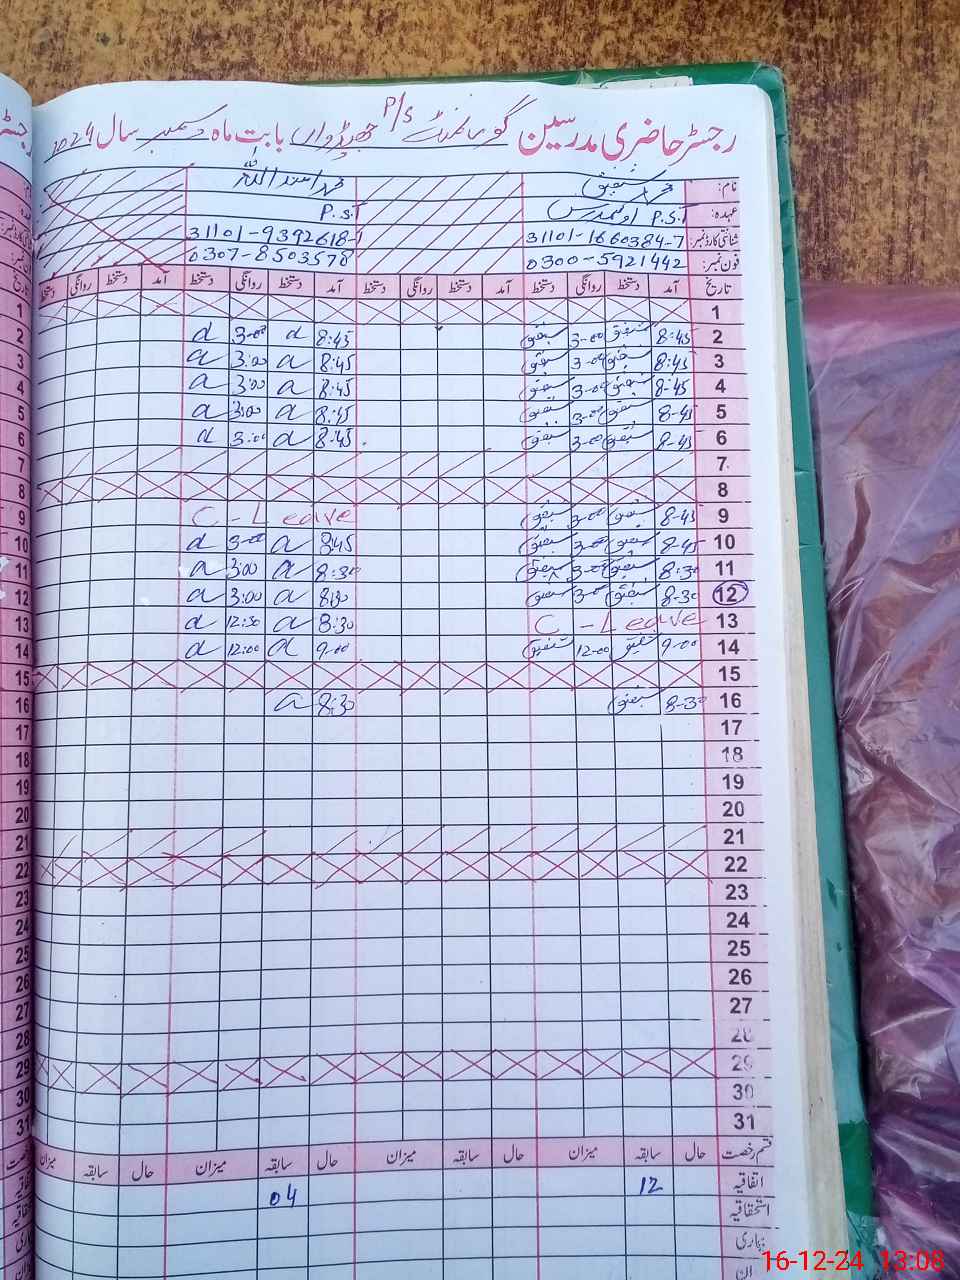 رجسٹر حاضری مدرسین گورنمنٹ P/S جھنڈواں بابت ماہ دسمبر سال 2024
نام: محمد شفیق محمد اسد اللہ
عہدہ: P.S.T اول مدرس P.S.T
شناختی کارڈ نمبر: 31101-1660384-7 31101-9392618-1
فون نمبر: 0300-5921442 0307-8503578
تاریخ آمد دستخط روانگی دستخط آمد دستخط روانگی دستخط آمد دستخط روانگی دستخط آمد دستخط روانگی دستخط
1
2 8:45 شفیق 3-00 شفیق 8:45 a 3-00 a
3 8:45 شفیق 3-00 شفیق 8:45 a 3:00 a
4 8-45 شفیق 3-00 شفیق 8:45 a 3:00 a
5 8-45 شفیق 3-00 شفیق 8:45 a 3:00 a
6 8-45 شفیق 3-00 شفیق 8:45 a 3:00 a
7
8
9 8-45 شفیق 3-00 شفیق C-Leave
10 8-45 شفیق 3-00 شفیق 8:45 a 3-00 a
11 8:30 شفیق 3-00 شفیق 8:30 a 3:00 a
12 8-30 شفیق 3-00 شفیق 8:30 a 3:00 a
13 C-Leave 8:30 a 12:30 a
14 9-00 شفیق 12-00 شفیق 9-00 a 12:00 a
15
16 8-30 شفیق 8:30 a
17
18
19
20
21
22
23
24
25
26
27
28
29
30
31
قسم رخصت حال سابقہ میزان حال سابقہ میزان حال سابقہ میزان حال سابقہ میزان
اتفاقیہ 12 04
استحقاقیہ
بیماری
16-12-24 13:08